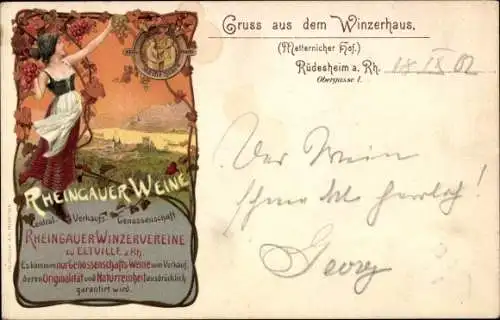 Gruss aus dem Winzerhaus,
(Metternicher Hof.)
Rüdesheim a. Rh. 18 IX 02
Obergasse 1.
Der Wein
schmeckt herrlich!
Georg
RHEINGAUER WEINE
Central-Verkaufs-Genossenschaft
RHEINGAUER WINZERVEREINE
zu ELTVILLE a. Rh.
Es kommen nur Genossenschafts-Weine zum Verkauf,
deren Originalität und Naturreinheit ausdrücklich
garantirt wird.